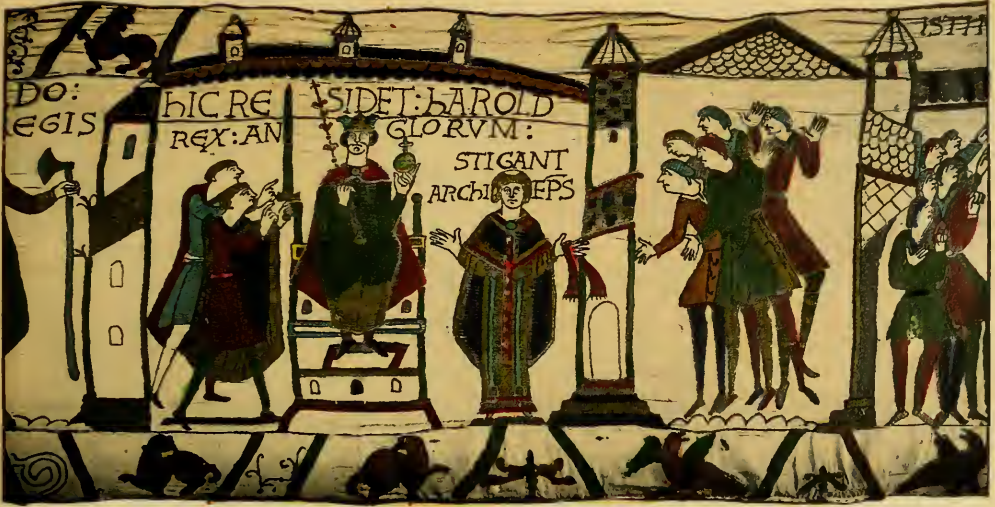 DO:
EGIS
hIC RE SIDET: hAROLD
REX: AN GLORVM:
STIGANT
ARCHI EPS
ISTI